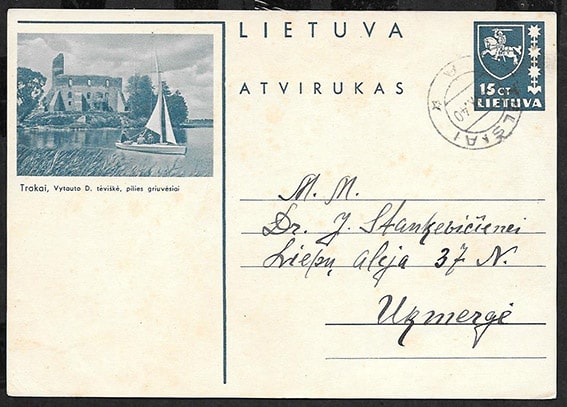 LIETUVA
ATVIRUKAS
15 CT
LIETUVA
Trakai, Vytauto D. tėviškė, pilies griuvėsiai
M. M.
Dr. J. Stankevičienei
Liepų alėja 37 N.
Ukmergė